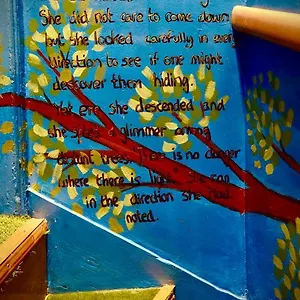 She did not care to come down
but she looked carefully in every
direction to see if one might
discover than hiding.
she descended and
she spied a glimmer among
distant trees. There is no danger
where there is light. She ran
in the direction she had
noted.